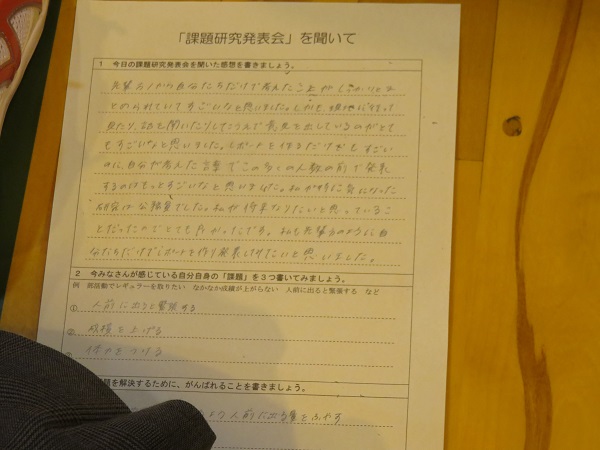 「課題研究発表会」を聞いて
1 今日の課題研究発表会を聞いた感想を書きましょう。
先輩方が自分たちだけで考えたことがしっかりとま
とめられていてすごいなと思いました。しかも、現地に行って
見たり、話を聞いたりしたうえで意見を出しているのがとて
もすごいなと思いました。レポートを作るだけでもすごい
のに、自分が考えた言葉でこの多くの人数の前で発表
するのはもっとすごいなと思いました。私が特に気になった
研究は公務員でした。私が将来なりたいと思っているこ
とだったのでとても良かったです。私も先輩方のように自
分たちだけでレポートを作り発表してみたいと思いました。
2 今みなさんが感じている自分自身の「課題」を3つ書いてみましょう。
例 部活動でレギュラーを取りたい なかなか成績が上がらない 人前に出ると緊張する など
① 人前に出ると緊張する
② 成績を上げる
体力をつける
題を解決するために、がんばれることを書きましょう。
人前に出る量をふやす